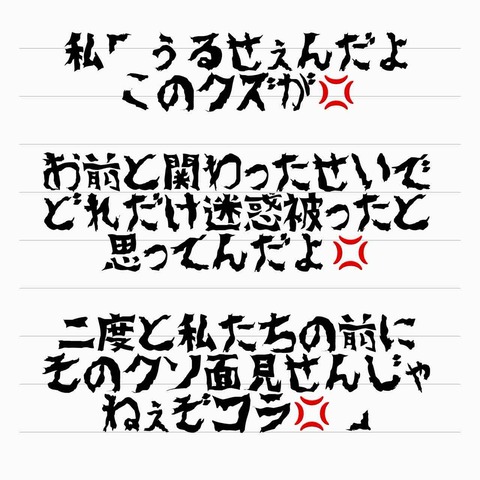 私「うるせぇんだよ
このクズが💢
お前と関わったせいで
どれだけ迷惑被ったと
思ってんだよ💢
二度と私たちの前に
そのクソ面見せんじゃ
ねぇぞコラ💢」